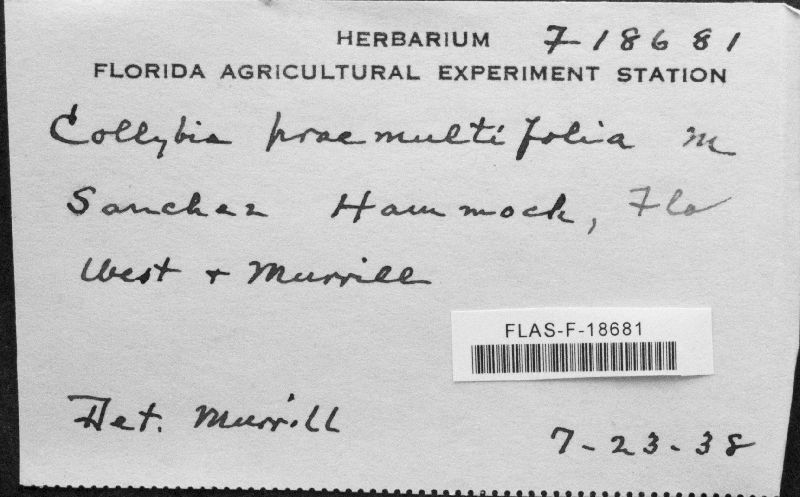 HERBARIUM F 18681
FLORIDA AGRICULTURAL EXPERIMENT STATION
Collybia praemultifolia M
Sanchez Hammock, Fla
West + Murrill
FLAS-F-18681
Det. Murrill
7-23-38